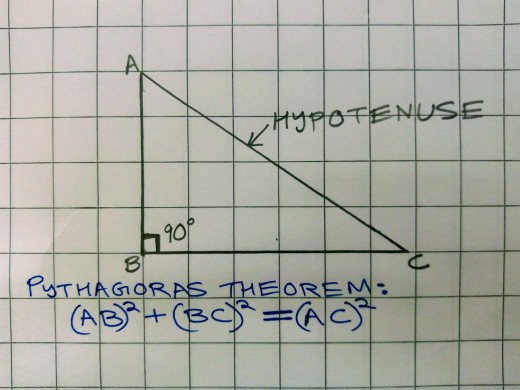 A
HYPOTENUSE
90°
B
C
PYTHAGORAS THEOREM:
(AB)²+(BC)²=(AC)²